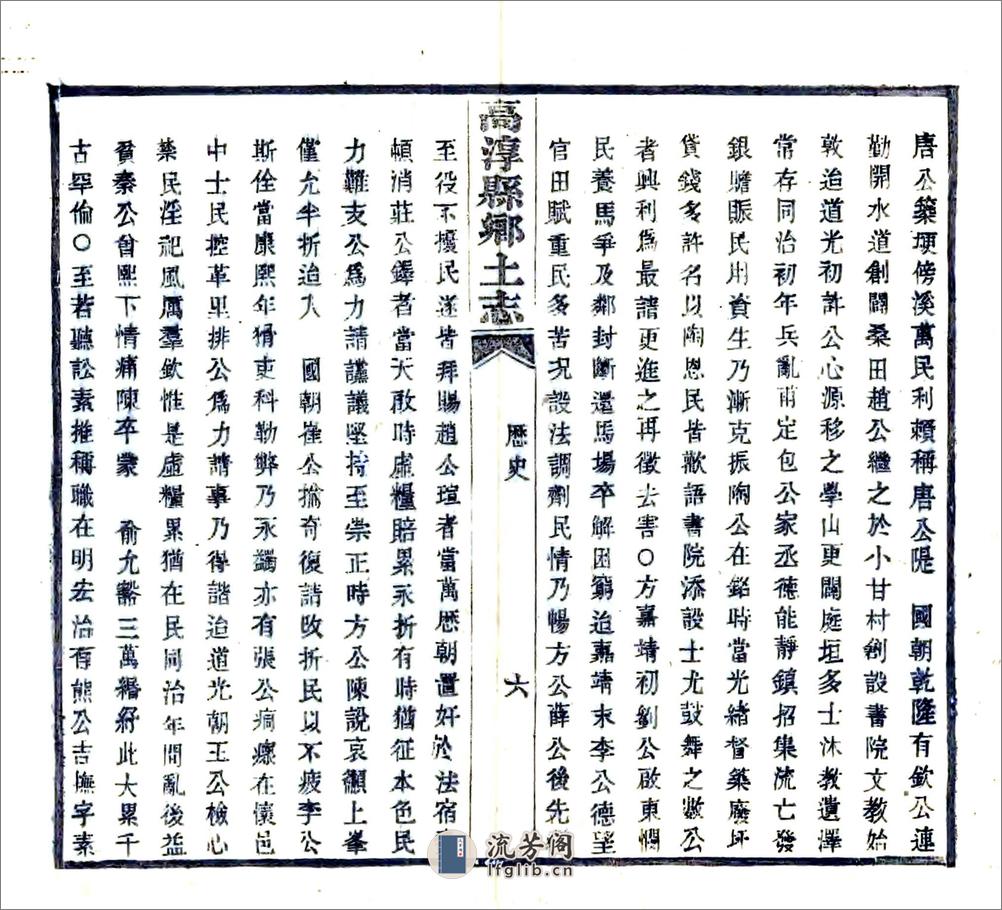 唐公築埂傍溪萬民利賴稱唐公隄　國朝乾隆有欽公連
勤開水道創闢桑田趙公繼之於小甘村創設書院文教始
敦迨道光初許公心源移之學山更闢庭垣多士沐教遺澤
常存同治初年兵亂甫定包公家丞德能靜鎮招集流亡發
銀贍賑民用資生乃漸克振陶公在銘時當光緒督築廢圩
貸錢多許名以陶恩民皆歡語書院添設士尤鼓舞之數公
者興利爲最請更進之再徵去害〇方嘉靖初劉公啟東憫
民養馬爭及鄰封斷還馬場卒解困窮迨嘉靖末李公德望
官田賦重民多苦况設法調劑民情乃暢方公薛公後先
高淳縣鄉土志
歷史
六
至役不擾民遂皆拜賜趙公瑄者當萬歷朝置奸於法宿
頓消莊公鐸者當天啟時虛糧賠累永折有時猶征本色民
力難支公爲力請讜議堅持至崇正時方公陳說哀籲上峯
僅允半折迨入　國朝崔公掄奇復請改折民以不疲李公
斯佺當康熙年猾吏科勒弊乃永蠲亦有張公痌瘝在懷邑
中士民控革里排公爲力請事乃得諧迨道光朝王公檢心
禁民淫祀風厲羣欽惟是虛糧累猶在民同治年間亂後益
貧秦公曾熙下情痛陳卒蒙　俞允豁三萬緡紓此大累千
古罕倫〇至若聽訟素推稱職在明宏治有熊公吉撫字素
流芳阁
lfglib.cn